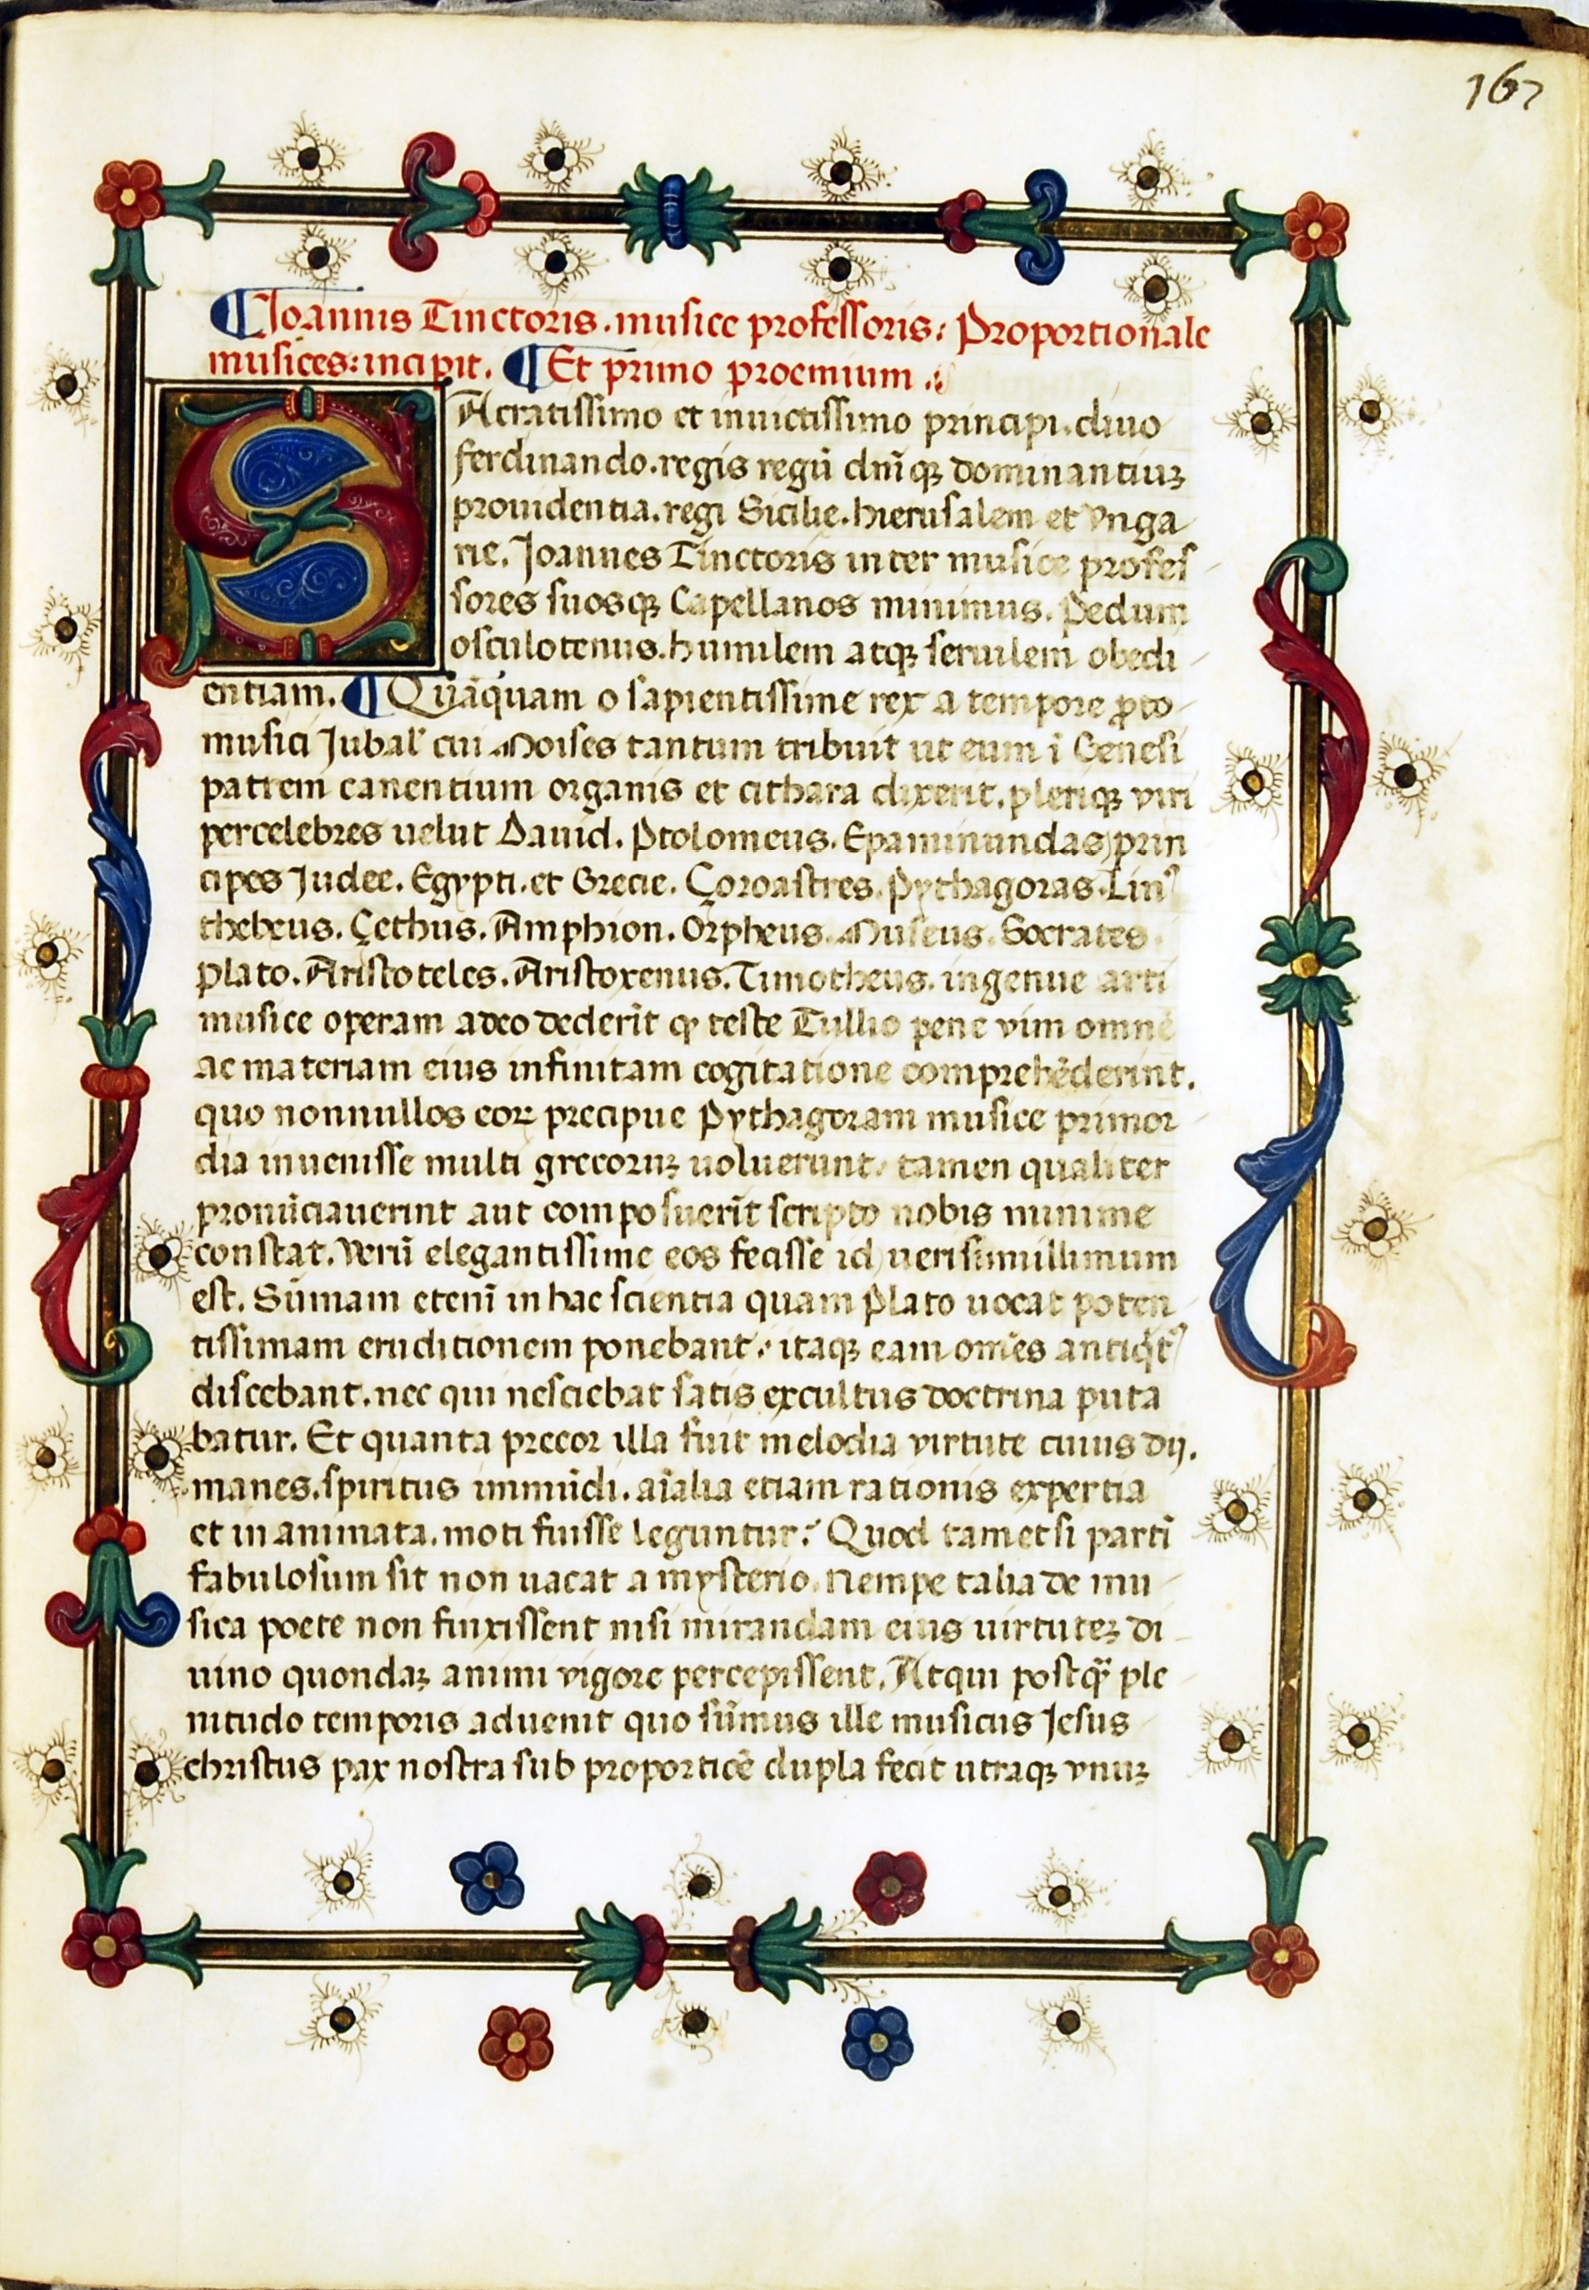 167
¶ Joannis Tinctoris. musice professoris: Proportionale
musices: incipit. ¶ Et primo proemium.
SAcratissimo et inuictissimo principi. diuo
ferdinando. regis regū dn̄iqꝫ dominantiuꝫ
prouidentia. regi Sicilie. hierusalem et vnga
rie. Joannes Tinctoris inter musice profes
sores suosqꝫ Capellanos minimus. Pedum
osculotenus. humilem atqꝫ seruilem obedi
entiam. ¶ Quāquam o sapientissime rex a tempore ꝓto
musici Jubal cui Moises tantum tribuit ut eum ī Genesi
patrem canentium organis et cithara dixerit. pleriqꝫ viri
percelebres uelut Dauid. Ptolomeus. Epaminundas prin
cipes Judee. Egypti. et Grecie. Çoroastres. Pythagoras. Linꝰ
thebeus. Çethus. Amphion. Orpheus. Museus. Socrates
plato. Aristoteles. Aristoxenus. Timotheus. ingenue arti
musice operam adeo dederīt ꝙ teste Tullio pene vim omnē
ac materiam eius infinitam cogitatione comprehēderint.
quo nonnullos eoꝝ precipue Pythagoram musice primor
dia inuenisse multi grecoruꝫ uoluerunt. tamen qualiter
pronūciauerint aut composuerīt scripto nobis minime
constat. Verū elegantissime eos fecisse id uerisimillimum
est. Sūmam etenī in hac scientia quam plato uocat poten
tissimam eruditionem ponebant. itaqꝫ eam om̄es antiq̇tꝰ
discebant. nec qui nesciebat satis excultus doctrina puta
batur. Et quanta precor illa fuit melodia virtute cuius dij.
manes. spiritus immūdi. aīalia etiam rationis expertia
et inanimata. moti fuisse leguntur. Quod tametsi partī
fabulosum sit non uacat a mysterio. Nempe talia de mu
sica poete non finxissent nisi mirandam eius uirtuteꝫ di
uino quondaꝫ animi vigore percepissent. Atqui postqꝫ̄ ple
nitudo temporis aduenit quo sūmus ille musicus Jesus
christus pax nostra sub proporticē dupla fecit utraqꝫ vnuꝫ